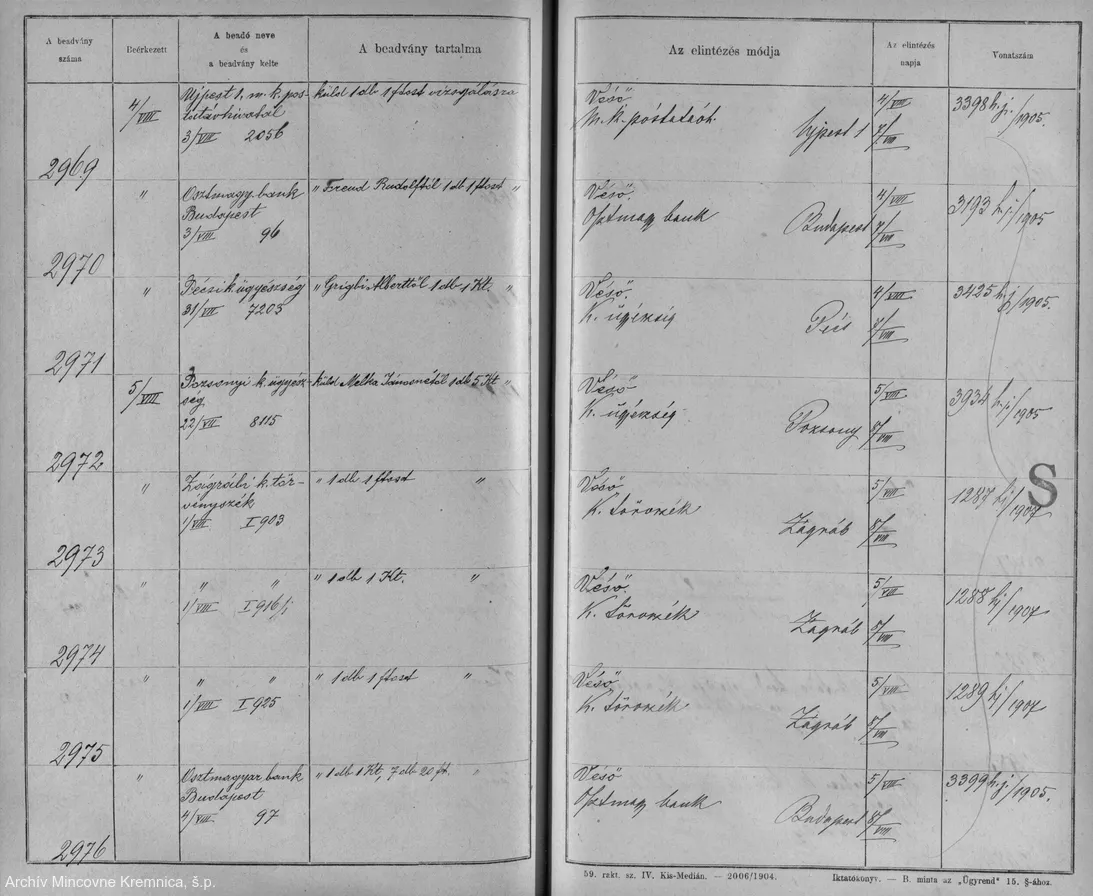 A beadvány
száma
Beérkezett
A beadó neve
és
a beadvány kelte
A beadvány tartalma
Az elintézés módja
Az elintézés
napja
Vonatszám
2969
4/VIII
Ujpest 1, m. k. pos-
tatávhivatal
3/VIII 2056
küld 1 db 1 ftost vizsgálásra
Véső
M. k. póstatáót. Ujpest 1
4/VIII
7/VIII
3398 h.j./1905.
2970
"
Osztmagy. bank
Budapest
3/VIII 96
" Freud Rudolftól 1 db 1 ftost "
Véső.
Osztmagy bank Budapest
4/VIII
7/VIII
3193 h.j/1905
2971
"
Pécsi k. ügyészség
31/VII 7205
" Grigbi Alberttől 1 db 1 Kt. "
Véső.
K. ügyészség Pécs
4/VIII
7/VIII
3425 h.j/1905.
2972
5/VIII
Pozsonyi k. ügyész-
ség
22/VII 8115
küld Melka Jánosnétól 1 db 5 Kt "
Véső
K. ügyészség Pozsony
5/VIII
8/VIII
3934 h.j/1905
2973
"
Zágrábi k. tör-
vényszék
1/VIII I 903
" 1 db 1 ftost "
Véső
K. törvszék Zágráb
5/VIII
8/VIII
1287 hj/1907
S
2974
"
" "
1/VIII I 916/j
" 1 db 1 Kt. "
Véső
K. törvszék Zágráb
5/VIII
8/VIII
1288 hj/1907
2975
"
" "
1/VIII I 925
" 1 db 1 ftost "
Véső
K. törvszék Zágráb
5/VIII
8/VIII
1289 hj/1907
2976
"
Osztmagyar bank
Budapest
4/VIII 97
" 1 db 1 Kt, 7 db 20 ft. "
Véső
Osztmagy bank Budapest
5/VIII
8/VIII
3399 h.j./1905.
59. rakt. sz. IV. Kis-Medián. — 2006/1904.
Iktatókönyv. — B. minta az „Ügyrend" 15. §-ához.
Archív Mincovne Kremnica, š.p.